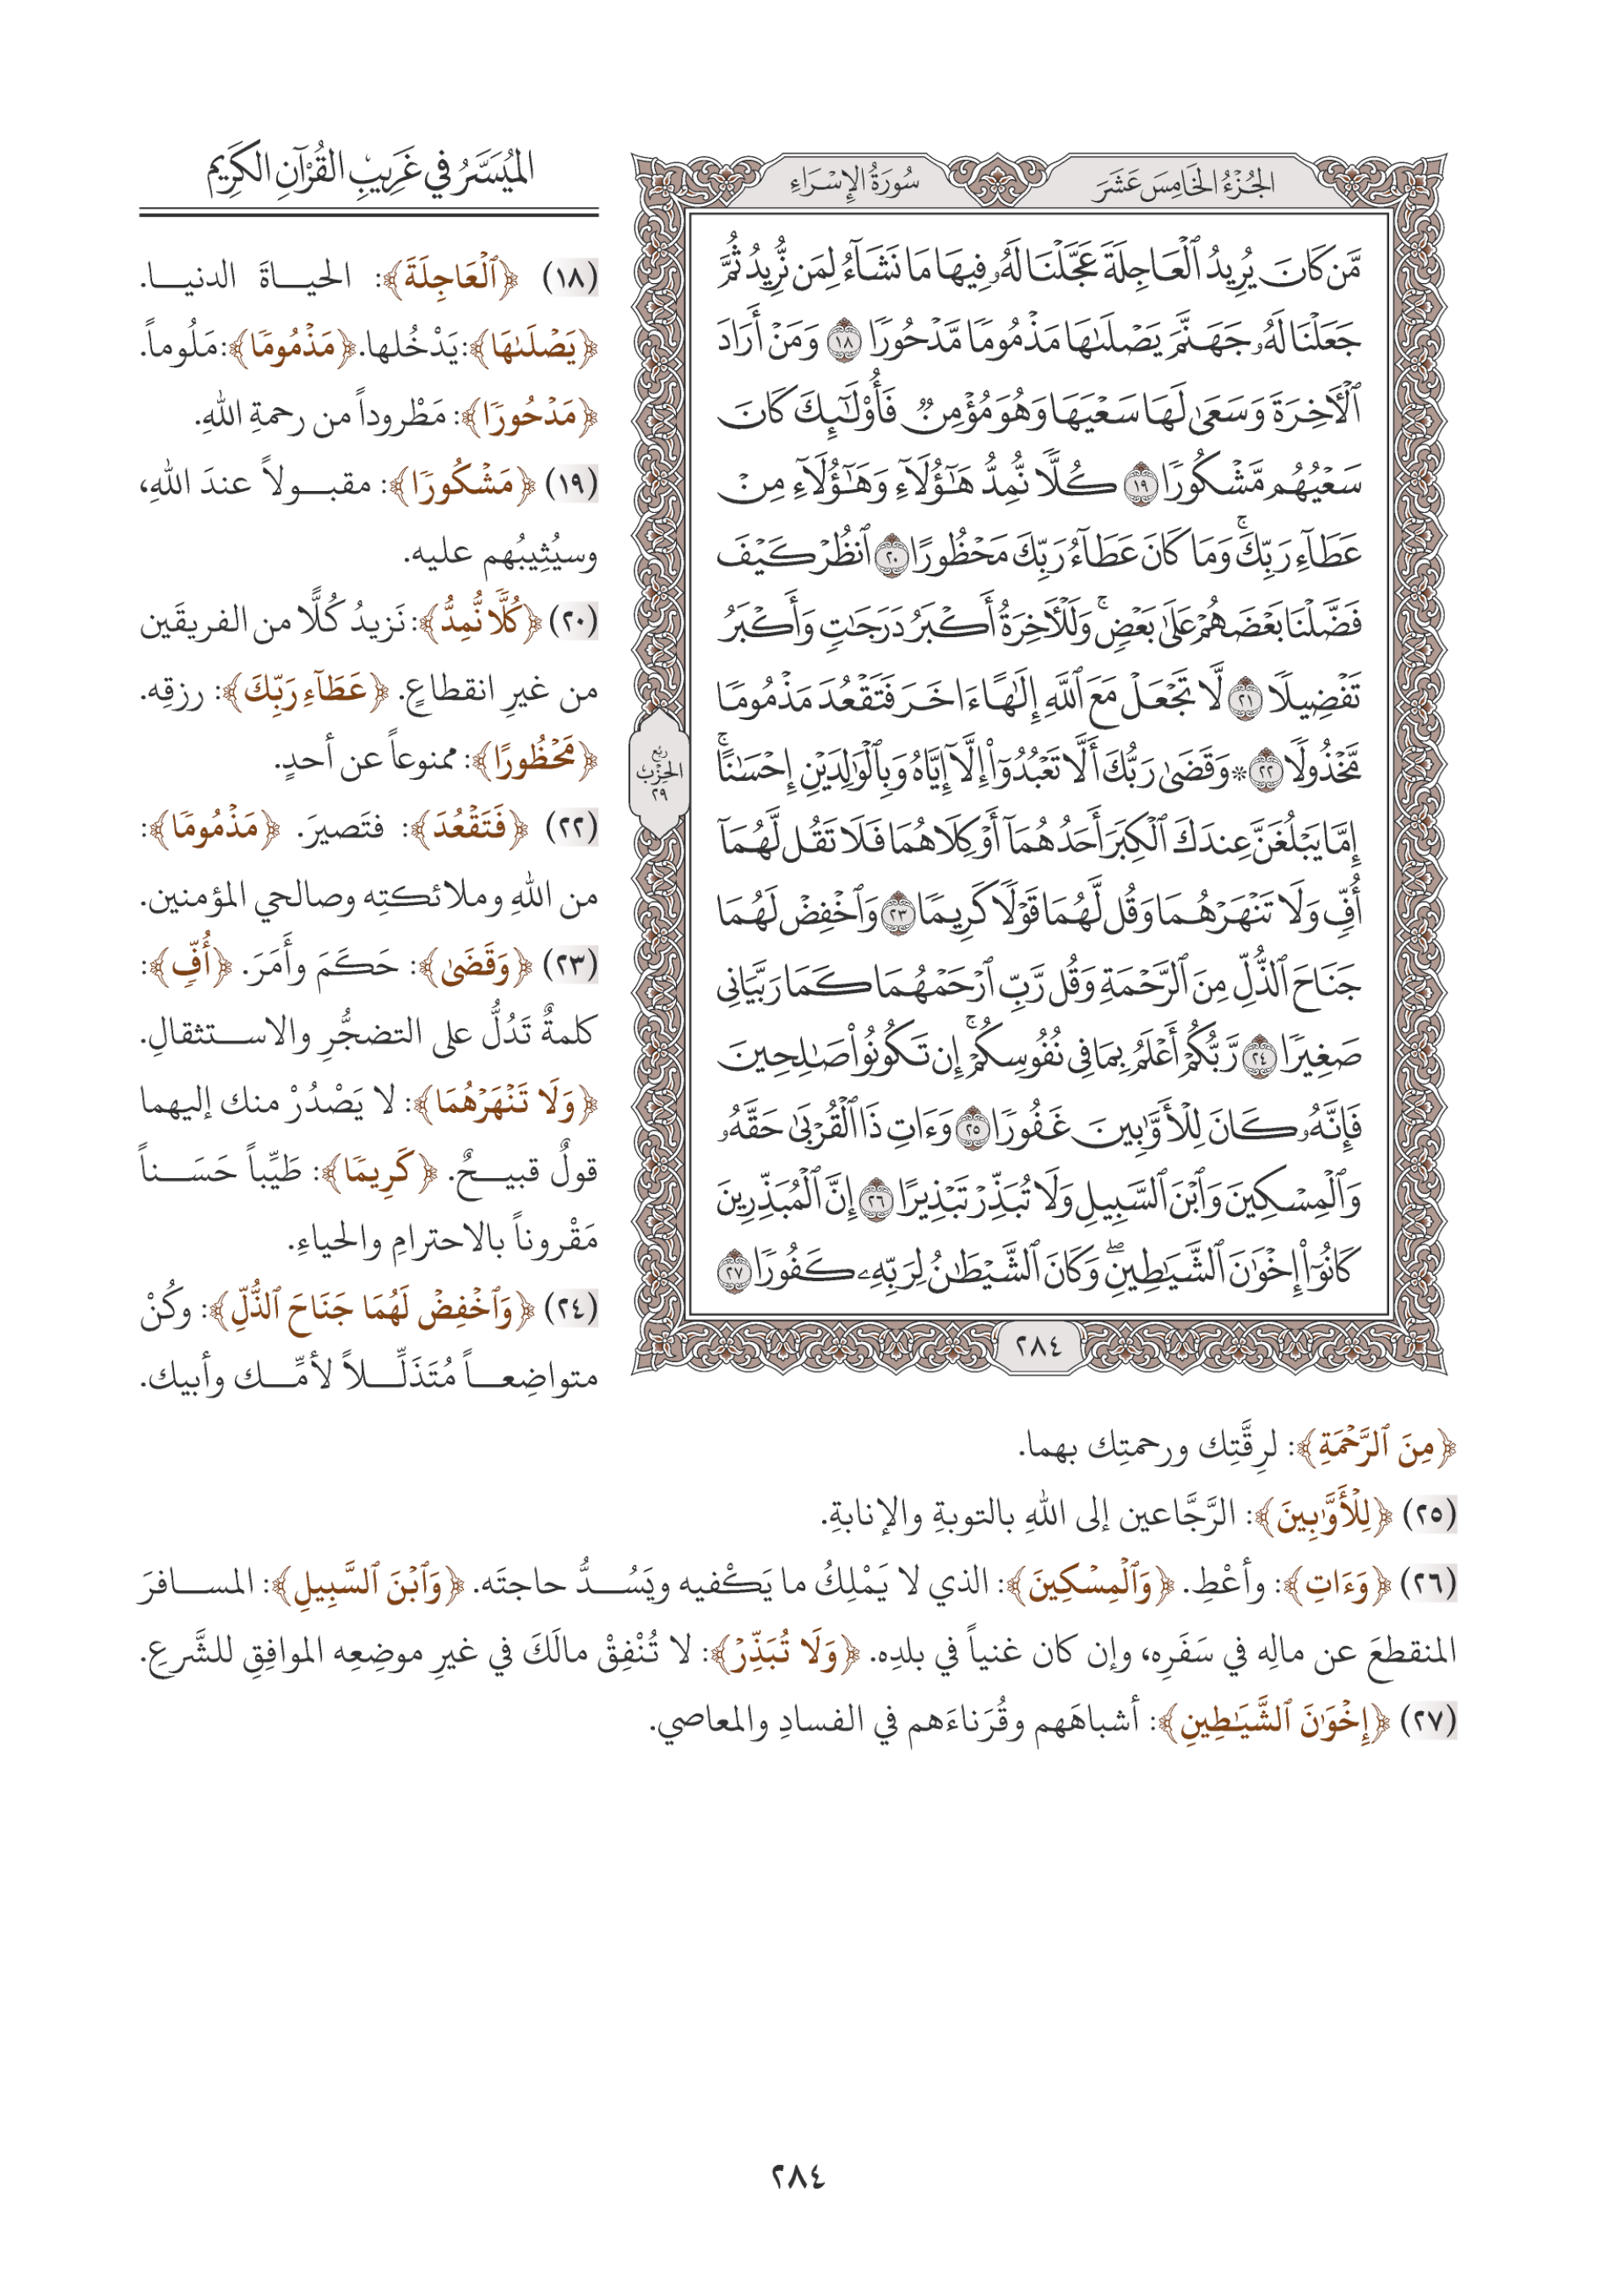 الجُزْءُ الخَامِسَ عَشَرَ
سُورَةُ الإِسْرَاءِ
مَّن كَانَ يُرِيدُ ٱلْعَاجِلَةَ عَجَّلْنَا لَهُۥ فِيهَا مَا نَشَآءُ لِمَن نُّرِيدُ ثُمَّ
جَعَلْنَا لَهُۥ جَهَنَّمَ يَصْلَىٰهَا مَذْمُومًا مَّدْحُورًا ١٨ وَمَنْ أَرَادَ
ٱلْأٓخِرَةَ وَسَعَىٰ لَهَا سَعْيَهَا وَهُوَ مُؤْمِنٌ فَأُو۟لَٰٓئِكَ كَانَ
سَعْيُهُم مَّشْكُورًا ١٩ كُلًّا نُّمِدُّ هَٰٓؤُلَآءِ وَهَٰٓؤُلَآءِ مِنْ
عَطَآءِ رَبِّكَۚ وَمَا كَانَ عَطَآءُ رَبِّكَ مَحْظُورًا ٢٠ ٱنظُرْ كَيْفَ
فَضَّلْنَا بَعْضَهُمْ عَلَىٰ بَعْضٍۚ وَلَلْأٓخِرَةُ أَكْبَرُ دَرَجَٰتٍ وَأَكْبَرُ
تَفْضِيلًا ٢١ لَّا تَجْعَلْ مَعَ ٱللَّهِ إِلَٰهًا ءَاخَرَ فَتَقْعُدَ مَذْمُومًا
مَّخْذُولًا ٢٢ ۞ وَقَضَىٰ رَبُّكَ أَلَّا تَعْبُدُوٓا۟ إِلَّآ إِيَّاهُ وَبِٱلْوَٰلِدَيْنِ إِحْسَٰنًاۚ
إِمَّا يَبْلُغَنَّ عِندَكَ ٱلْكِبَرَ أَحَدُهُمَآ أَوْ كِلَاهُمَا فَلَا تَقُل لَّهُمَآ
أُفٍّ وَلَا تَنْهَرْهُمَا وَقُل لَّهُمَا قَوْلًا كَرِيمًا ٢٣ وَٱخْفِضْ لَهُمَا
جَنَاحَ ٱلذُّلِّ مِنَ ٱلرَّحْمَةِ وَقُل رَّبِّ ٱرْحَمْهُمَا كَمَا رَبَّيَانِى
صَغِيرًا ٢٤ رَّبُّكُمْ أَعْلَمُ بِمَا فِى نُفُوسِكُمْۚ إِن تَكُونُوا۟ صَٰلِحِينَ
فَإِنَّهُۥ كَانَ لِلْأَوَّٰبِينَ غَفُورًا ٢٥ وَءَاتِ ذَا ٱلْقُرْبَىٰ حَقَّهُۥ
وَٱلْمِسْكِينَ وَٱبْنَ ٱلسَّبِيلِ وَلَا تُبَذِّرْ تَبْذِيرًا ٢٦ إِنَّ ٱلْمُبَذِّرِينَ
كَانُوٓا۟ إِخْوَٰنَ ٱلشَّيَٰطِينِۖ وَكَانَ ٱلشَّيْطَٰنُ لِرَبِّهِۦ كَفُورًا ٢٧
ربع
الحزب
٢٩
٢٨٤
المُيَسَّرُ في غَرِيبِ القُرْآنِ الكَرِيمِ
(١٨) ﴿ٱلْعَاجِلَةَ﴾: الحياةَ الدنيا.
﴿يَصْلَىٰهَا﴾: يَدْخُلها. ﴿مَذْمُومًا﴾: مَلُوماً.
﴿مَدْحُورًا﴾: مَطْروداً من رحمةِ اللهِ.
(١٩) ﴿مَشْكُورًا﴾: مقبولاً عندَ اللهِ،
وسيُثِيبُهم عليه.
(٢٠) ﴿كُلًّا نُّمِدُّ﴾: نَزيدُ كُلًّا من الفريقَين
من غيرِ انقطاعٍ. ﴿عَطَآءِ رَبِّكَ﴾: رزقِه.
﴿مَحْظُورًا﴾: ممنوعاً عن أحدٍ.
(٢٢) ﴿فَتَقْعُدَ﴾: فتَصيرَ. ﴿مَذْمُومًا﴾:
من اللهِ وملائكتِه وصالحي المؤمنين.
(٢٣) ﴿وَقَضَىٰ﴾: حَكَمَ وأَمَرَ. ﴿أُفٍّ﴾:
كلمةٌ تَدُلُّ على التضجُّرِ والاستثقالِ.
﴿وَلَا تَنْهَرْهُمَا﴾: لا يَصْدُرْ منك إليهما
قولٌ قبيحٌ. ﴿كَرِيمًا﴾: طَيِّباً حَسَناً
مَقْروناً بالاحترامِ والحياءِ.
(٢٤) ﴿وَٱخْفِضْ لَهُمَا جَنَاحَ ٱلذُّلِّ﴾: وكُنْ
متواضِعاً مُتَذَلِّلاً لأمِّك وأبيك.
﴿مِنَ ٱلرَّحْمَةِ﴾: لرِقَّتِك ورحمتِك بهما.
(٢٥) ﴿لِلْأَوَّٰبِينَ﴾: الرَّجَّاعين إلى اللهِ بالتوبةِ والإنابةِ.
(٢٦) ﴿وَءَاتِ﴾: وأعْطِ. ﴿وَٱلْمِسْكِينَ﴾: الذي لا يَمْلِكُ ما يَكْفيه ويَسُدُّ حاجتَه. ﴿وَٱبْنَ ٱلسَّبِيلِ﴾: المسافرَ
المنقطعَ عن مالِه في سَفَرِه، وإن كان غنياً في بلدِه. ﴿وَلَا تُبَذِّرْ﴾: لا تُنْفِقْ مالَكَ في غيرِ موضِعِه الموافِقِ للشَّرعِ.
(٢٧) ﴿إِخْوَٰنَ ٱلشَّيَٰطِينِ﴾: أشباهَهم وقُرَناءَهم في الفسادِ والمعاصي.
٢٨٤